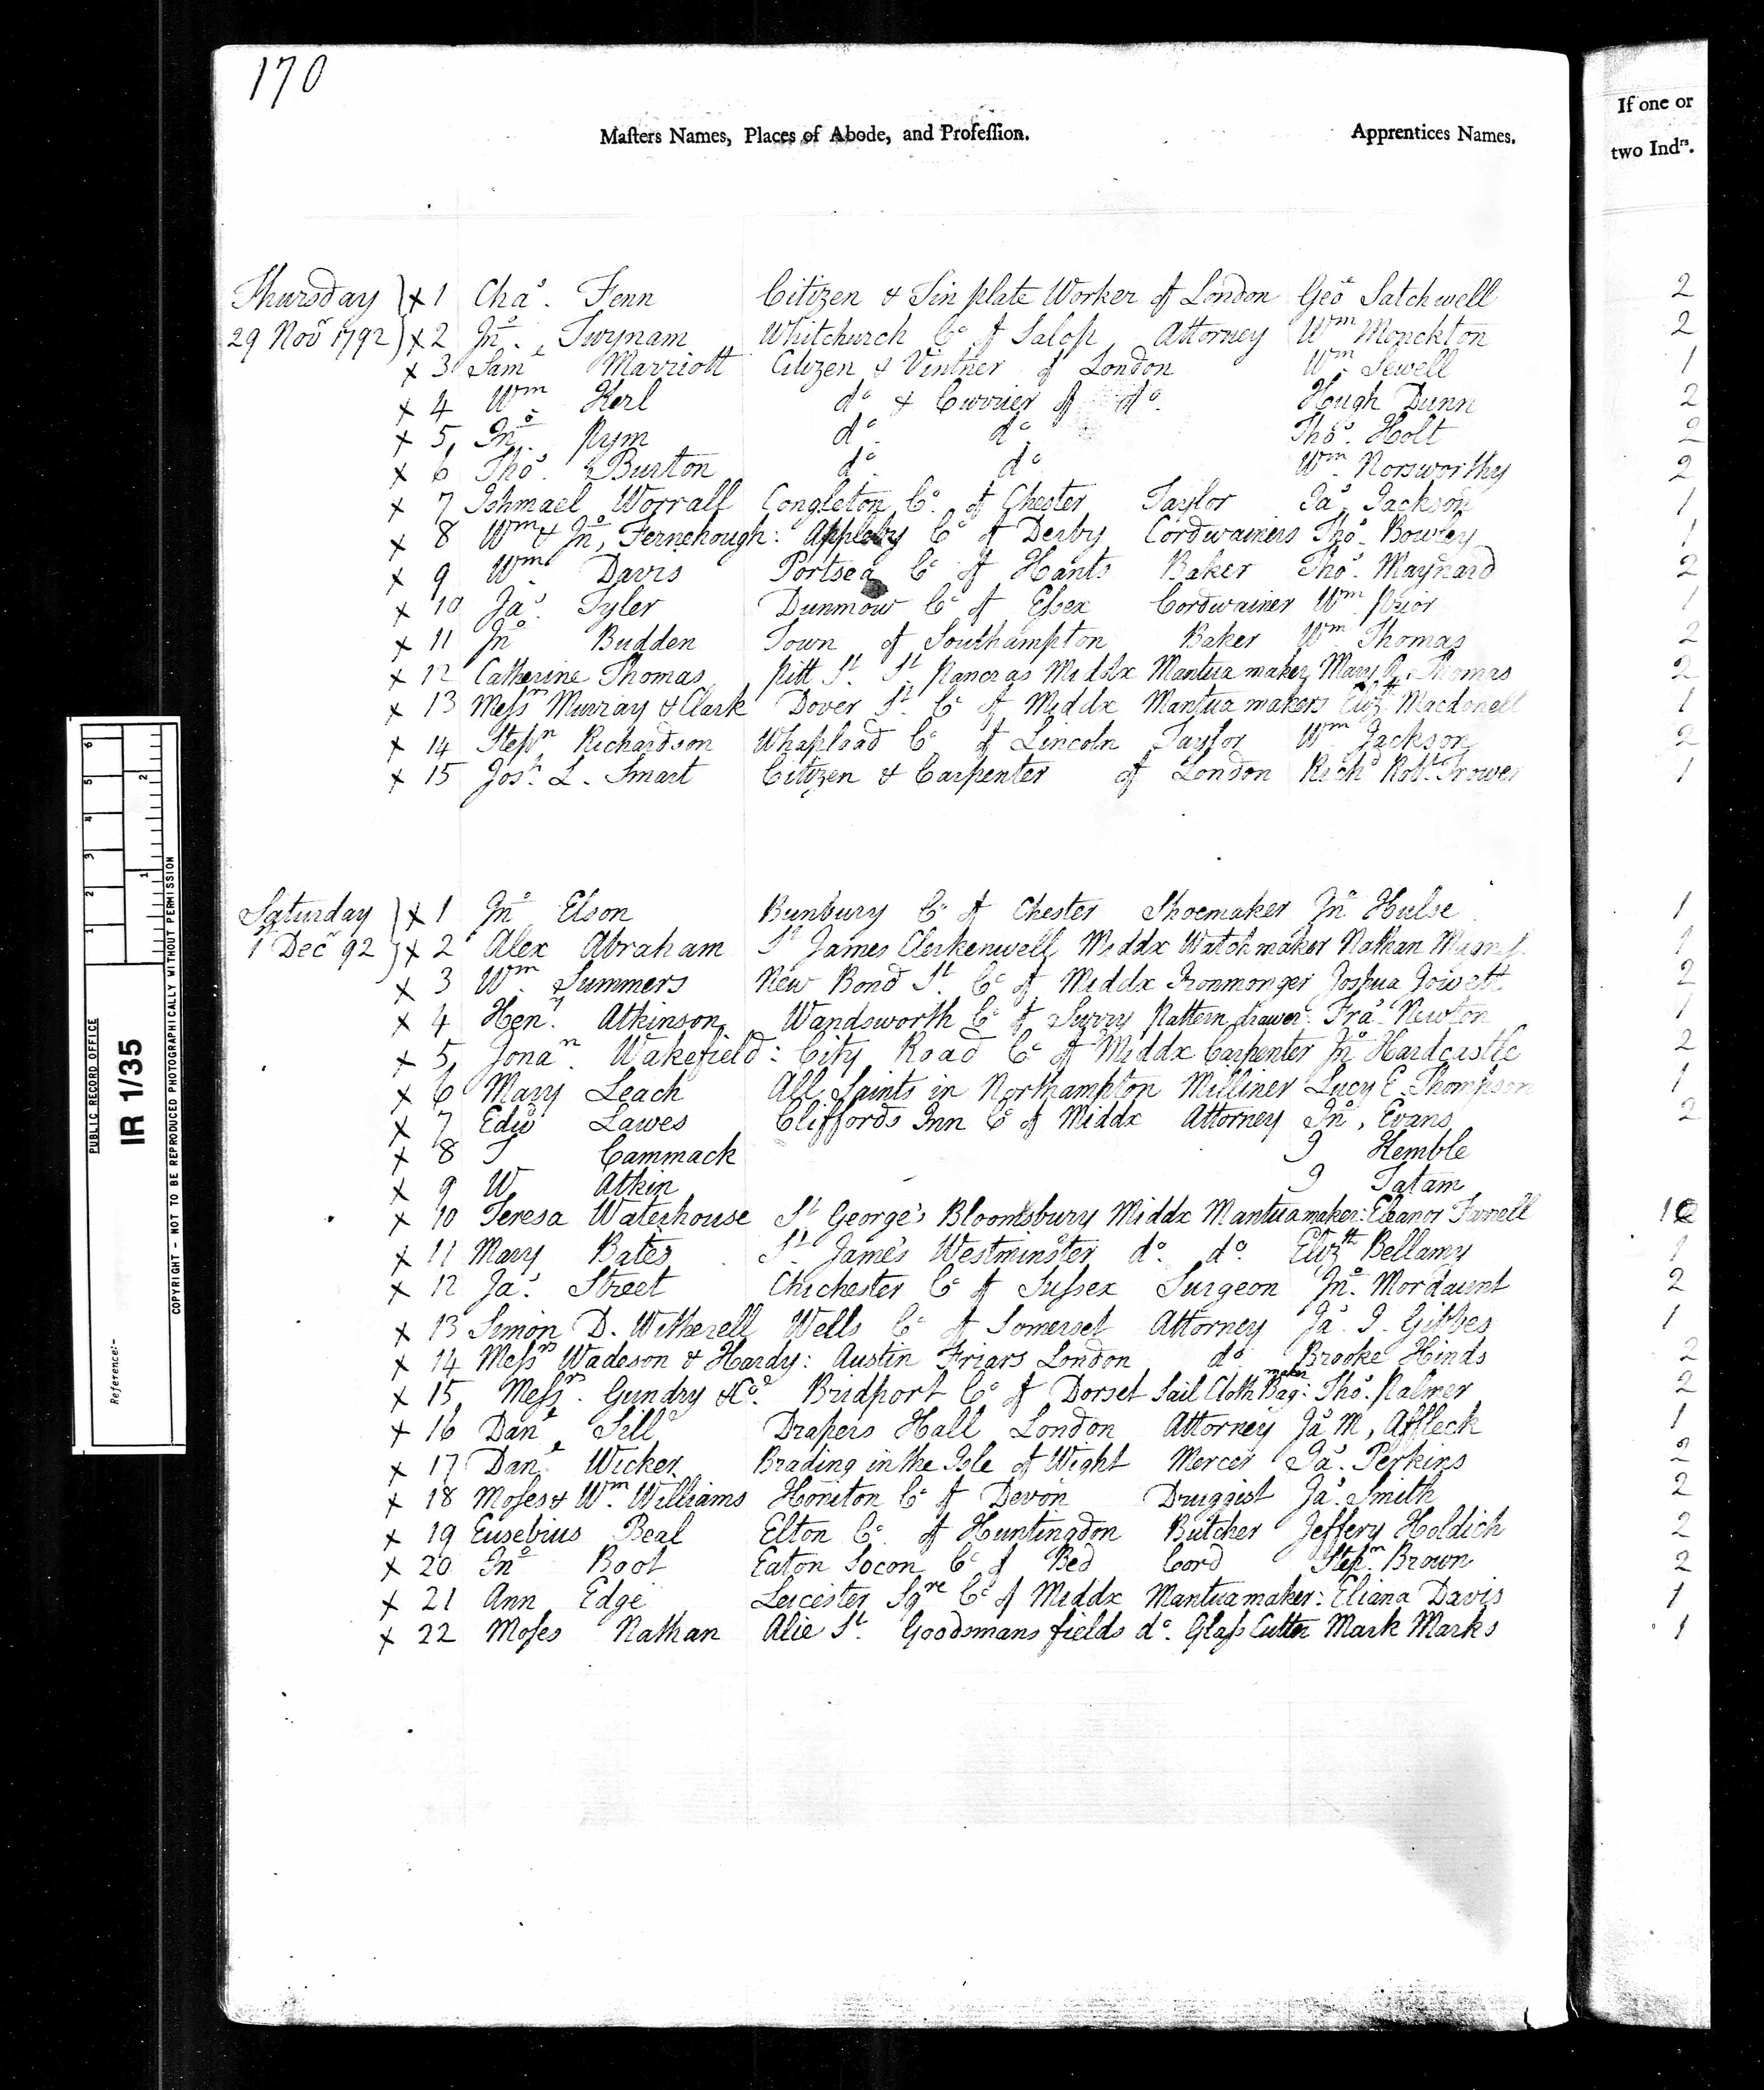 170
Maſters Names, Places of Abode, and Profeſſion. Apprentices Names. If one or two Indrs.
Thursday x 1 Chas. Fenn Citizen & Tin plate Worker of London Geo Satchwell 2
29 Novr 1792 x 2 Jno. Twynam Whitchurch Co of Salop Attorney Wm Monckton 2
x 3 Saml Marriott Citizen & Vintner of London Wm Sewell 1
x 4 Wm Kerl do & Currier of do. Hough Dunn 2
x 5 Jno. Pym do. do. Thos. Holt 2
x 6 Thos. Burton do. do Wm Norsworthy 2
x 7 Ishmael Worrall Congleton Co. of Chester Taylor Jas. Jackson 1
x 8 Wm & Jno. Fernehough: Appleby Co of Derby Cordwainers Thos. Bowley 1
x 9 Wm. Davis Portsea Co of Hants Baker Thos. Maynard 2
x 10 Jas. Tyler Dunmow Co of Eſsex Cordwainer Wm. Prior 1
x 11 Jno Budden Town of Southampton Baker Wm Thomas 2
x 12 Catherine Thomas Pitt St. St. Pancras Middx Mantua maker Mary Thomas 2
x 13 Meſsrs Murray & Clark Dover St. Co of Middx Mantua makers Elizth Macdonell 1
x 14 Stepn Richardson Whapload Co of Lincoln Taylor Wm Jackson 2
x 15 Josh. L. Smart Citizen & Carpenter of London Richd Robt. Trower 1
Saturday x 1 Jno Elson Bunbury Co of Chester Shoemaker Jno Hulse 1
1st Decr 92 x 2 Alex Abraham St James Clerkenwell Middx Watchmaker Nathan 1
x 3 Wm. Summers New Bond St. Co of Middx Ironmonger Joshua Jowett 2
x 4 Heny. Atkinson Wandsworth Co of Surry Pattern drawer: Fras. Newton 1
x 5 Jonan. Wakefield: City Road Co of Middx Carpenter Jno Hardcastle 2
x 6 Mary Leach All Saints in Northampton Milliner Lucy E. Thompson 1
x 7 Edwd Lawes Cliffords Inn Co of Middx Attorney Jno. Evans 2
x 8 T Cammack J Kemble
x 9 W Atkin J Tatam
x 10 Teresa Waterhouse St George's Bloomsbury Middx Mantuamaker: Eleanor Farrell 1
x 11 Mary Bates St. James Westminster do. do. Elizth Bellamy 1
x 12 Jas. Street Chichester Co of Suſsex Surgeon Jno. Mordaunt 2
x 13 Simon D. Witherell Wells Co of Somerset Attorney Jas. J. Gibbes 1
x 14 Meſsrs Wadeson & Hardy: Austin Friars London do Brooke Hinds 2
x 15 Meſsrs. Gundry & Co. Bridport Co of Dorset Sail Cloth Bag: maker Thos. Palmer 2
x 16 Danl Sill Drapers Hall London Attorney Jas M, Affleck 1
x 17 Danl. Wicker Brading in the Isle of Wight Mercer Jas. Perkins 2
x 18 Moſes & Wm. Williams Honiton Co of Devon Druggist Jas. Smith 2
x 19 Eusebius Beal Elton Co. of Huntingdon Butcher Jeffery Holdich 2
x 20 Jno Boot Eaton Socon Co of Bed Cord Stepn. Brown 2
x 21 Ann Edge Leicester Sqre Co of Middx Mantuamaker: Eliana Davis 1
x 22 Moſes Nathan Alie St. Goodsmans fields do. Glaſs Cutter Mark Marks 1
PUBLIC RECORD OFFICE
IR 1/35
Reference:-
COPYRIGHT - NOT TO BE REPRODUCED PHOTOGRAPHICALLY WITHOUT PERMISSION
1 2 3 4 5 6
1 2